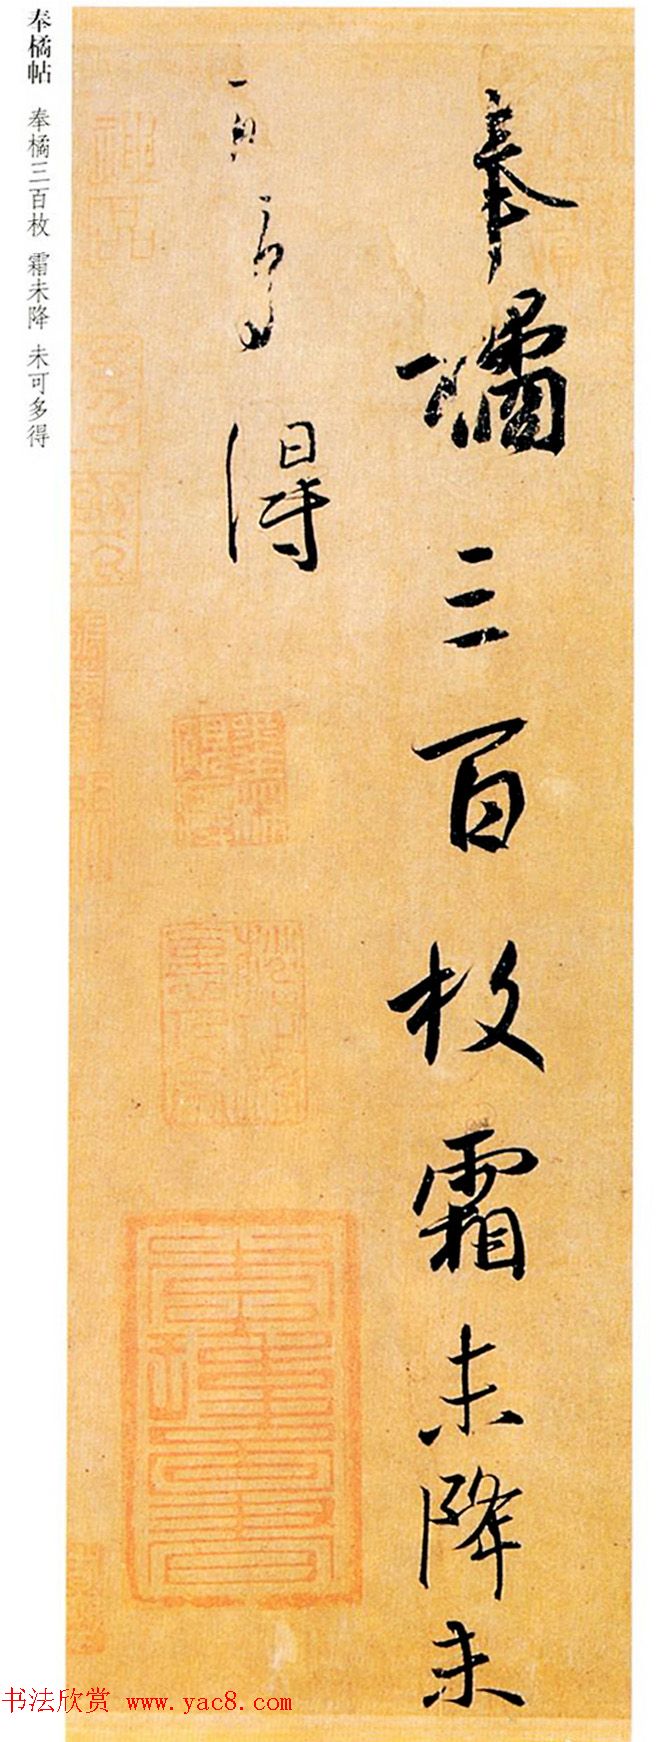 奉橘帖 奉橘三百枚 霜未降 未可多得
奉橘三百枚霜未降未
可多得
书法欣赏 www.yac8.com